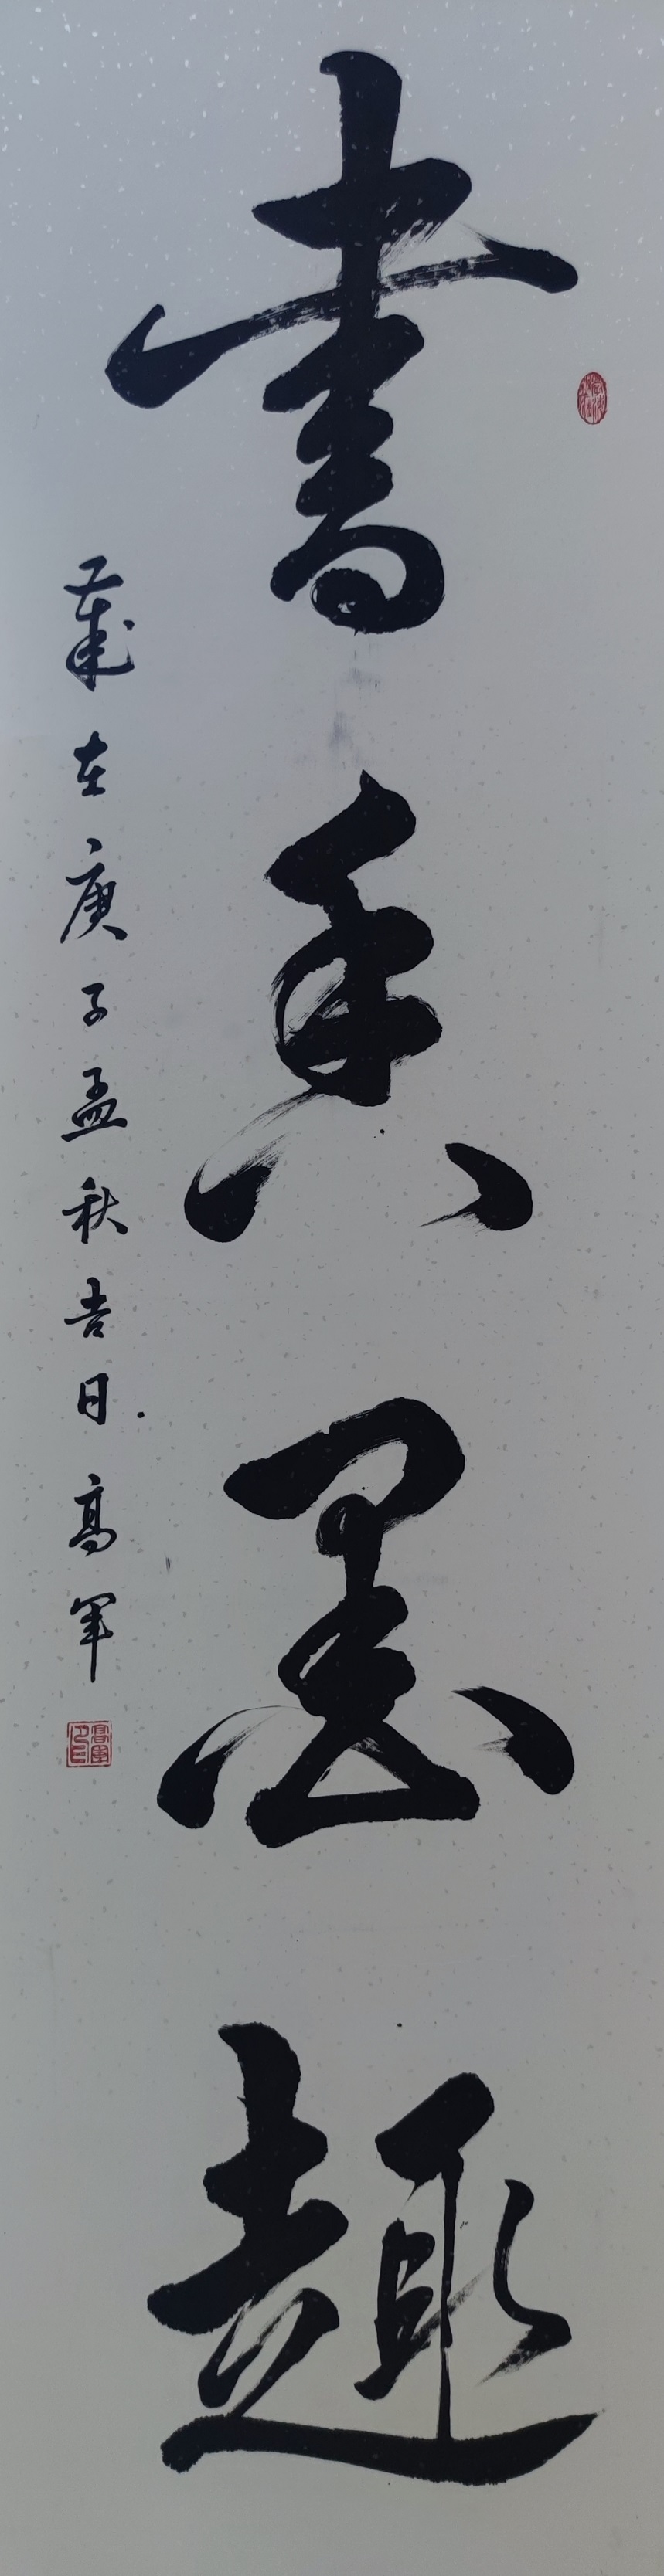 書香墨趣
歲在庚子孟秋吉日高軍